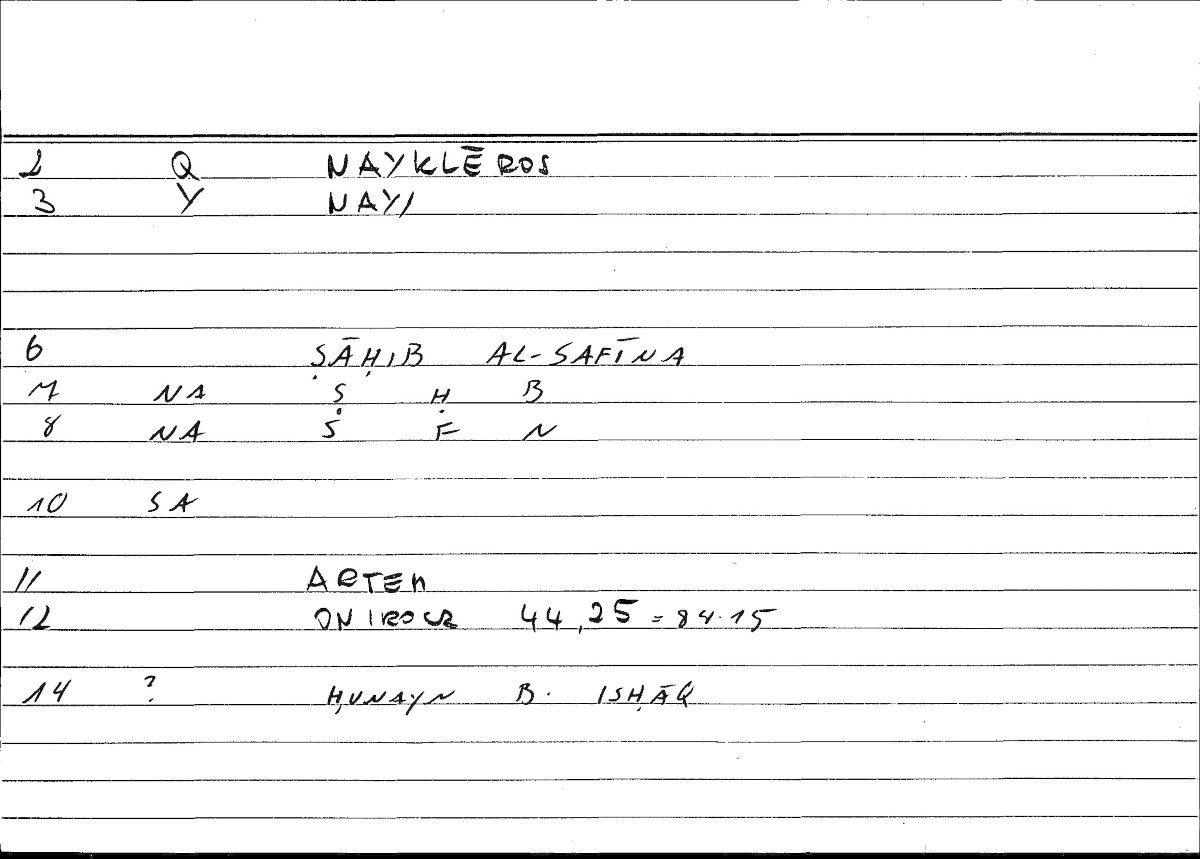 2 Q NAYKLĒROS
3 Y NAY/
6 ṢĀḤIB AL-SAFĪNA
7 NA Ṣ Ḥ B
8 NA S F N
10 SA
11 ARTEM
12 ONIROCR 44,25 = 84.15
14 ? ḤUNAYN B. ISḤĀQ